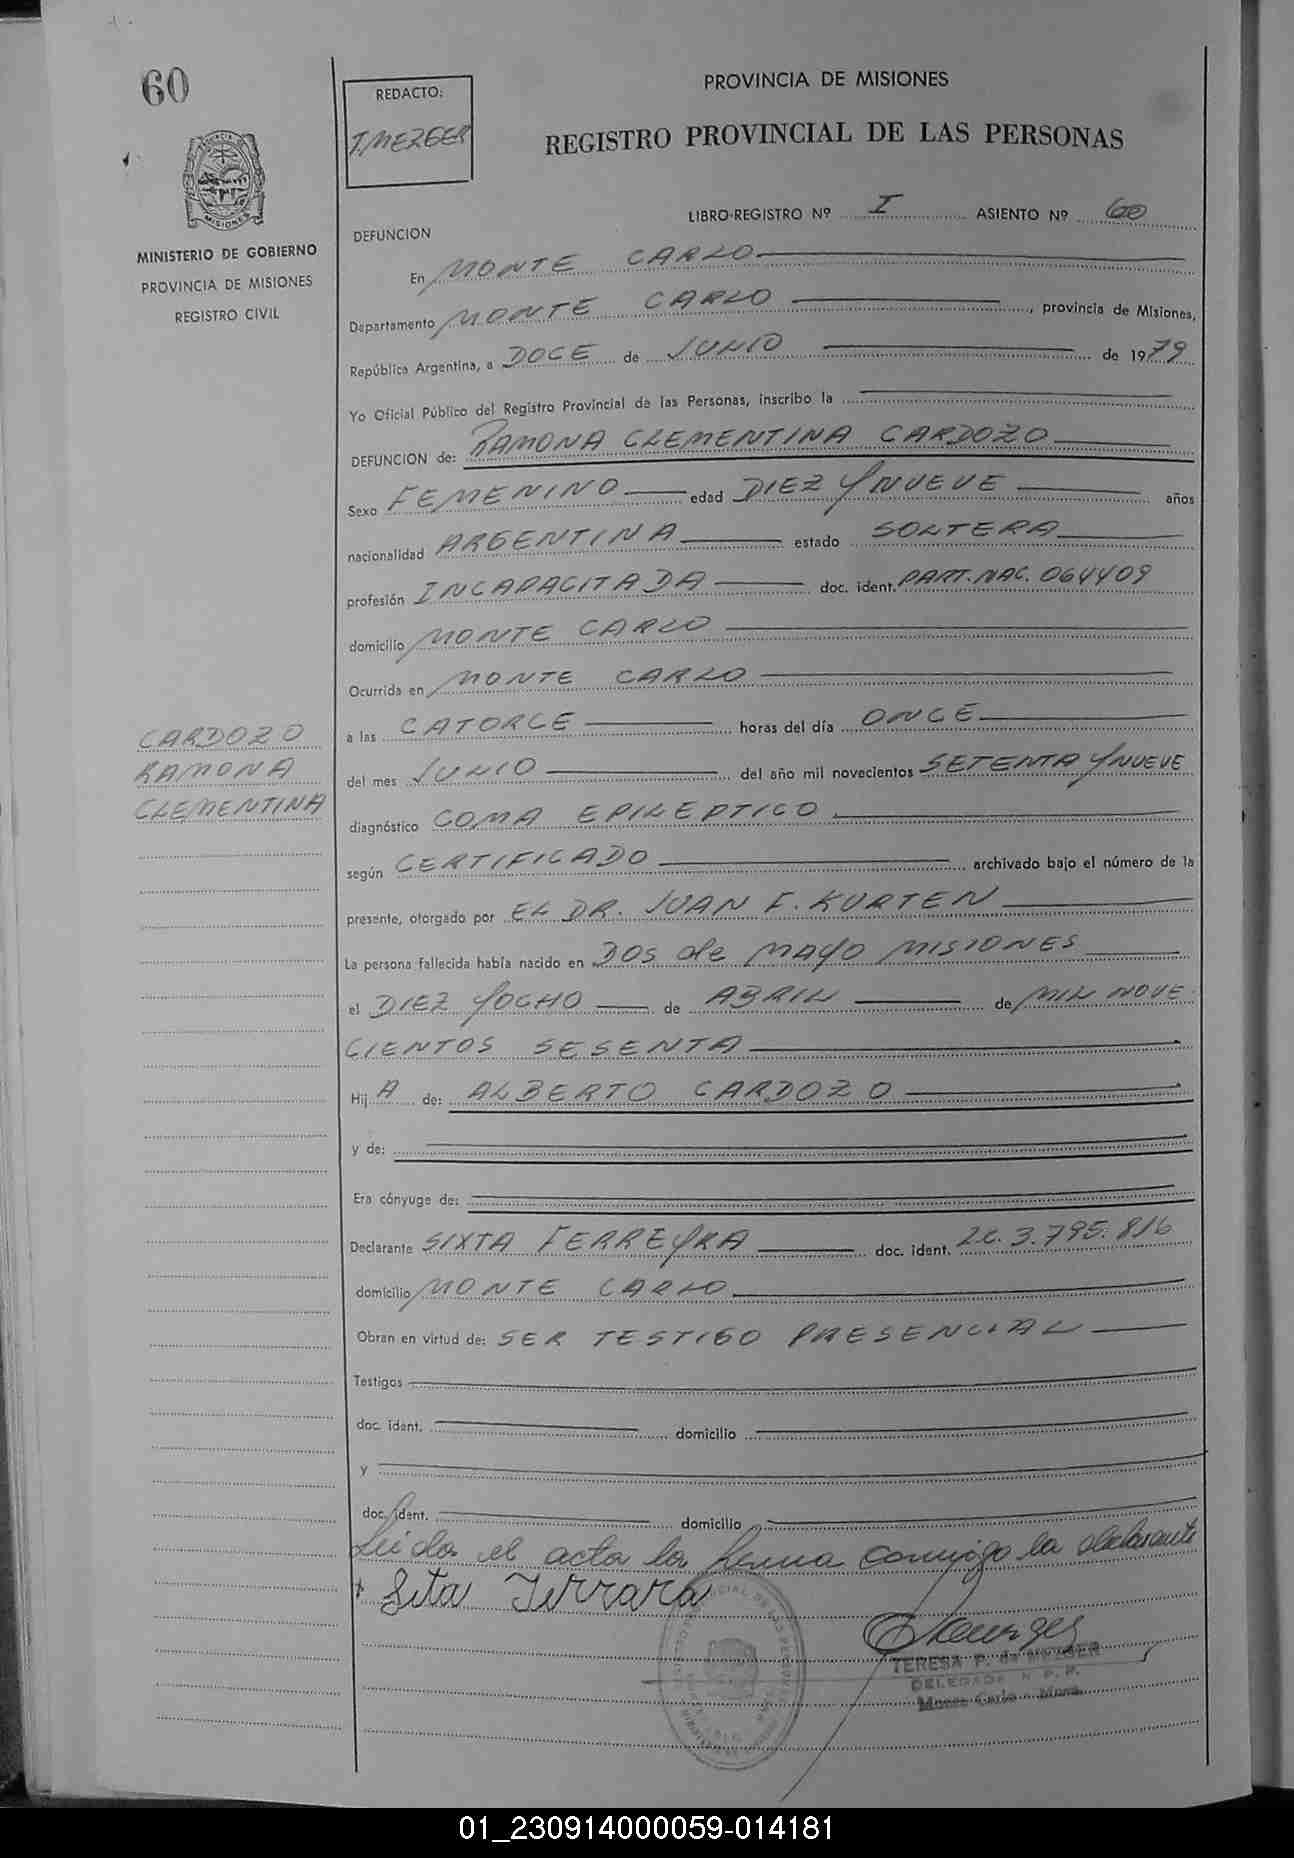 60
REDACTO:
T. MEZGER
PROVINCIA DE MISIONES
REGISTRO PROVINCIAL DE LAS PERSONAS
MISIONES
MINISTERIO DE GOBIERNO
PROVINCIA DE MISIONES
REGISTRO CIVIL
LIBRO-REGISTRO Nº I ASIENTO Nº 60
DEFUNCION
En MONTE CARLO
Departamento MONTE CARLO, provincia de Misiones,
República Argentina, a DOCE de JUNIO de 1979
Yo Oficial Público del Registro Provincial de las Personas, inscribo la
DEFUNCION de: RAMONA CLEMENTINA CARDOZO
Sexo FEMENINO edad DIEZ Y NUEVE años
nacionalidad ARGENTINA estado SOLTERA
profesión INCAPACITADA doc. ident. PART. NAC. 064409
domicilio MONTE CARLO
Ocurrida en MONTE CARLO
a las CATORCE horas del día ONCE
del mes JUNIO del año mil novecientos SETENTA Y NUEVE
CARDOZO
RAMONA
CLEMENTINA
diagnóstico COMA EPILEPTICO
según CERTIFICADO archivado bajo el número de la
presente, otorgado por EL DR. JUAN F. KURTEN
La persona fallecida había nacido en DOS de MAYO MISIONES
el DIEZ Y OCHO de ABRIL de MIL NOVE
CIENTOS SESENTA
Hij A de: ALBERTO CARDOZO
y de:
Era cónyuge de:
Declarante SIXTA FERREYRA doc. ident. L.C. 3.795.816
domicilio MONTE CARLO
Obran en virtud de: SER TESTIGO PRESENCIAL
Testigos
doc. ident. domicilio
y
doc. ident. domicilio
Leida el acta la firma conmigo la declarante
Sita Ferrara
TERESA P. de MEZGER
DELEGADA R. P. P.
Monte Carlo - Mnes.
01_230914000059-014181